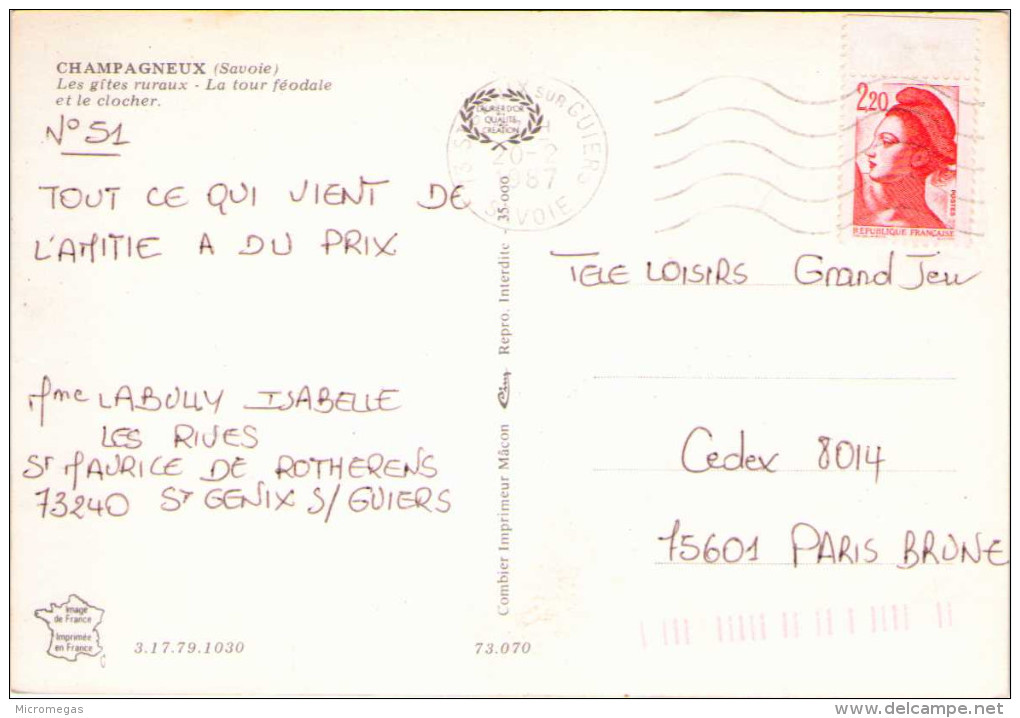 CHAMPAGNEUX (Savoie)
Les gîtes ruraux - La tour féodale
et le clocher.
N° 51
TOUT CE QUI VIENT DE
L'AMITIE A DU PRIX
Mme LABULLY ISABELLE
LES RIVES
ST MAURICE DE ROTHERENS
73240 ST GENIX S/ GUIERS
Image
de France
Imprimée
en France
3.17.79.1030
73.070
Combier Imprimeur Mâcon
Repro. Interdite - 35-000
LAURIER D'OR
QUALITE
CREATION
X SUR GUIERS
20-2
1987
SAVOIE
2,20
POSTES
REPUBLIQUE FRANÇAISE
TELE LOISIRS Grand Jeu
Cedex 8014
75601 PARIS BRUNE
Micromegas
delcampe.net